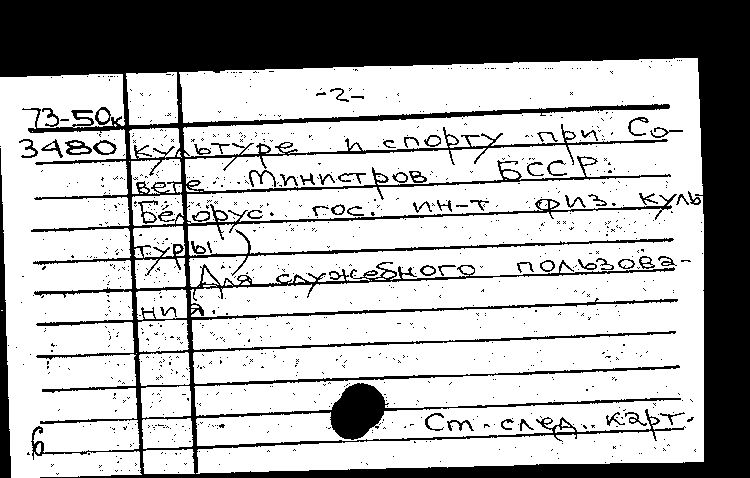 -2-
73-50к
3480 культуре и спорту при Со-
вете Министров БССР.
Белорус. гос. ин-т физ. куль
туры)
Для служебного пользова-
ния.
Ст. след. карт.
6